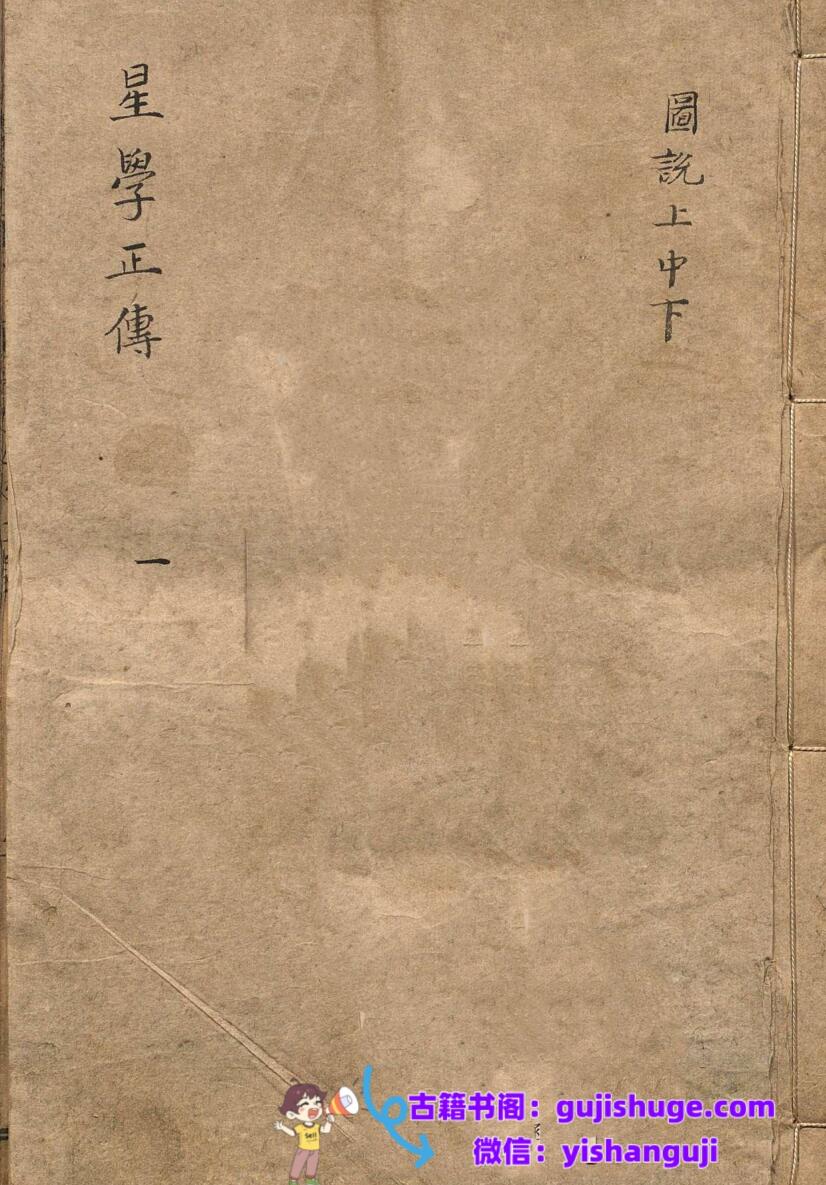 圖説上中下
星學正傳
一
古籍书阁：gujishuge.com
微信：yishanguji